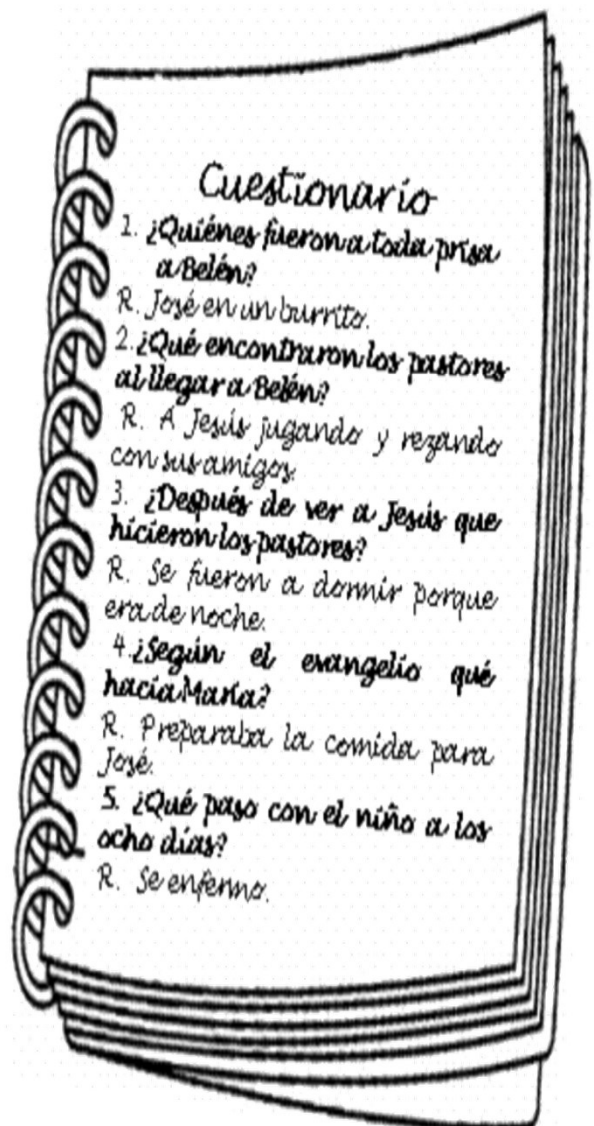 Cuestionario
1. ¿Quiénes fueron a toda prisa
a Belén?
R. José en un burrito.
2.¿Qué encontraron los pastores
al llegar a Belén?
R. A Jesús jugando y rezando
con sus amigos.
3. ¿Después de ver a Jesús que
hicieron los pastores?
R. Se fueron a dormir porque
era de noche.
4.¿Según el evangelio qué
hacía María?
R. Preparaba la comida para
José.
5. ¿Qué paso con el niño a los
ocho días?
R. Se enfermo.